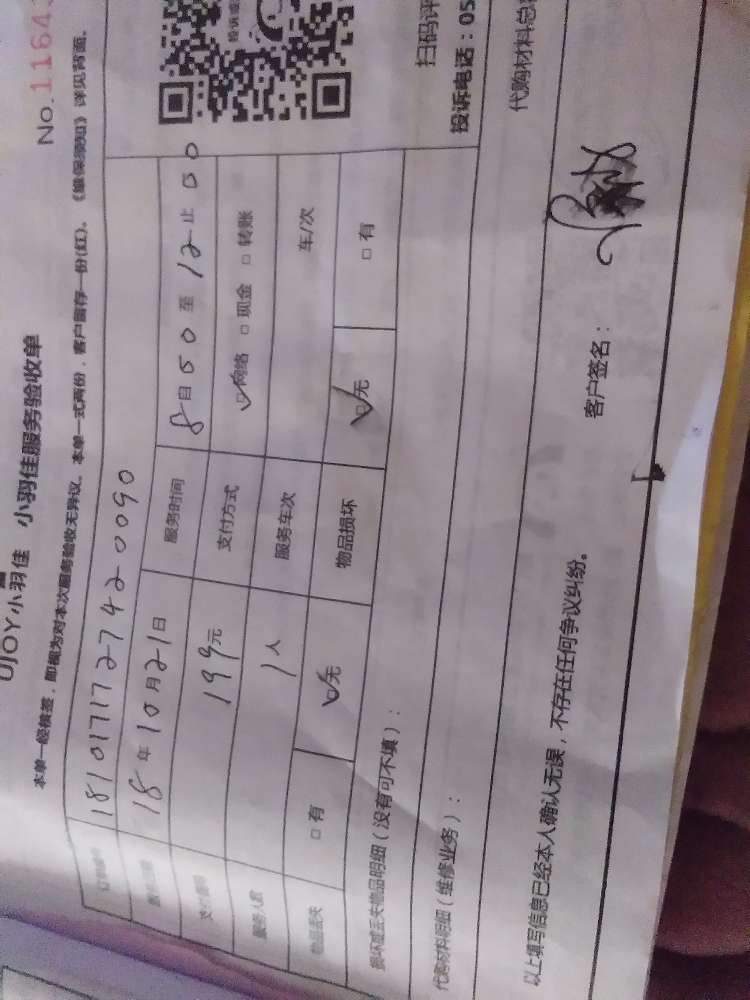 UJOY小羽佳 小羽佳服务验收单
No.1164
本单一经核签，即视为对本次服务验收无异议。本单一式两份，客户留存一份(红)。《维保须知》详见背面。
订单编号 1810171727420090
服务日期 18年10月21日 服务时间 8时50至12止00
支付费用 199元 支付方式 ☑网络 □现金 □转账
服务人数 1人 服务车次 车/次
物品丢失 □有 ☑无 物品损坏 ☑无 □有
损坏或丢失物品明细（没有可不填）：
扫码评
代购材料明细（维修业务）：
投诉电话：05
代购材料总
以上填写信息已经本人确认无误，不存在任何争议纠纷。
客户签名：